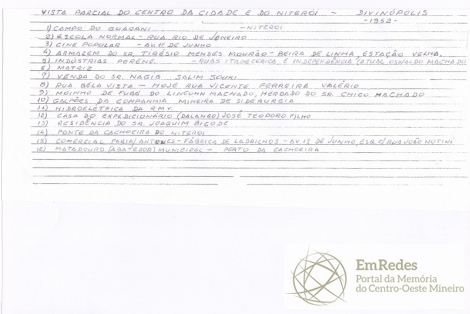 VISTA PARCIAL DO CENTRO DA CIDADE E DO NITERÓI - DIVINÓPOLIS
-1952-
1) CAMPO DO GUARANI - NITERÓI
2) ESCOLA NORMAL - RUA RIO DE JANEIRO
3) CINE POPULAR - AV. 1º DE JUNHO
4) ARMAZEM DO SR. TIRÉSIO MENDES MOURÃO - BEIRA DE LINHA, ESTAÇÃO VELHA,
5) INDÚSTRIAS - RUAS ITAPECERICA, E INDEPENDÊNCIA (ATUAL OSVALDO MACHADO
6) MATRIZ
7) VENDA DO SR. NAGIB SALIM SOUKI
8) RUA BELA VISTA - HOJE RUA VICENTE FERREIRA VALÉRIO
9) MOINHO DE FUBÁ DO LINCOLN MACHADO, HERDADO DO SR. CHICO MACHADO
10) GALPÕES DA COMPANHIA MINEIRA DE SIDERURGIA
11) HIDROELÉTRICA DA RMV
12) CASA DO EXPEDICIONÁRIO JOSÉ TEODORO FILHO
13) RESIDÊNCIA DO SR. JOAQUIM
14) PONTE DA CACHOEIRA DO NITERÓI
15) COMERCIAL FARIA - FÁBRICA DE LADRILHOS - AV. 1º DE JUNHO, ESQ. C/ RUA JOÃO
16) MATADOURO MUNICIPAL - PERTO DA CACHOEIRA
EmRedes
Portal da Memória
do Centro-Oeste Mineiro